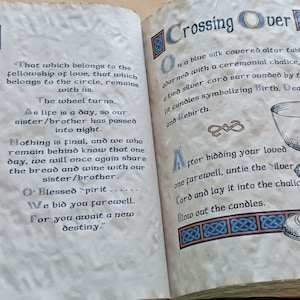 "That which belongs to the
fellowship of love, that which
belongs to the circle, remains
with us.
The wheel turns.
As life is a day, so our
sister/brother has passed
into night.
Nothing is final, and we who
remain behind know that one
day, we will once again share
the bread and wine with our
sister/brother.
O' Blessed Spirit ......
We bid you farewell.
For you await a new
destiny."
Crossing Over
On a blue silk covered altar
adorned with a ceremonial chalice,
a tied silver cord surrounded by
lit candles symbolizing Birth,
and Rebirth.
After bidding your loved
one farewell, untie the silver
Cord and lay it into the
Blow out the candles.